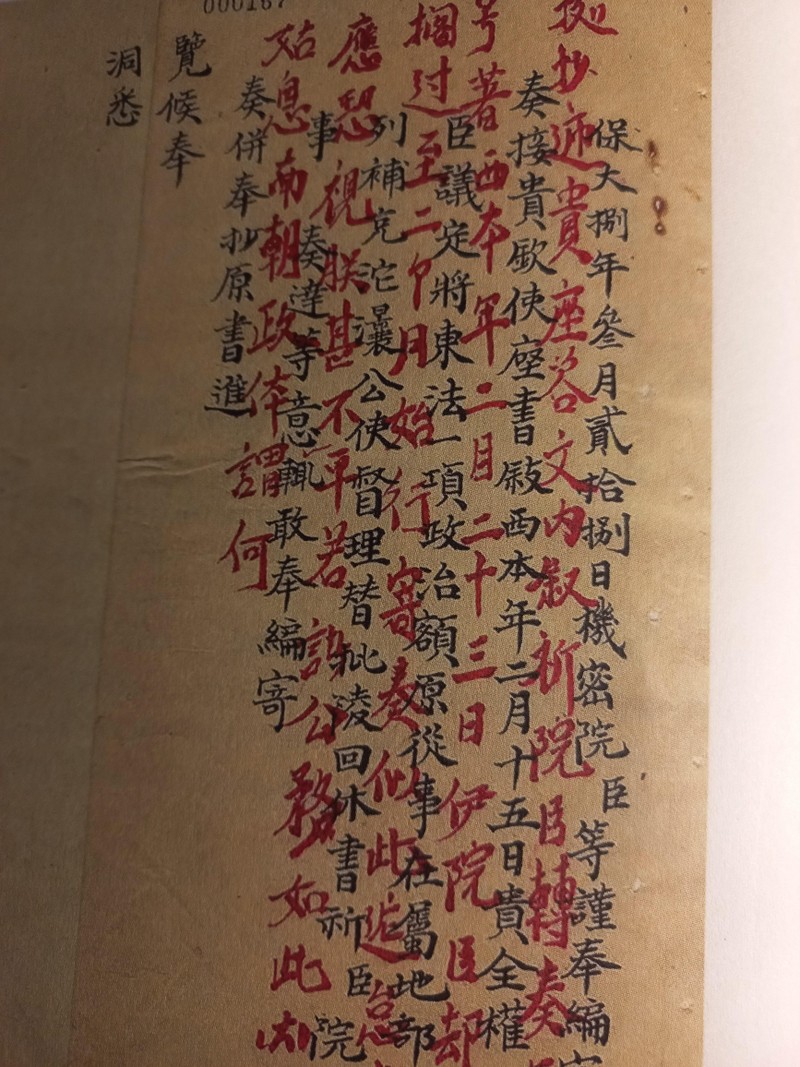 000167
保大捌年叄月貳拾捌日機密院臣等謹奉編
奏接貴欽使座書敍西本年二月十五日貴全權
臣議定將東法一項政治額原從事在屬地部
列補充沱瀼公使督理替批陵回休書祈臣院
事
奏達等意輒敢奉編寄
奏併奉抄原書進
覽候奉
洞悉
抄遞貴座咨文內叙祈院臣轉奏
号著西本年二月二十三日伊院臣却
擱过至二月始行寄奏似此延怠
應恐視朕甚不平若誤公務如此
姑息南朝政体謂何